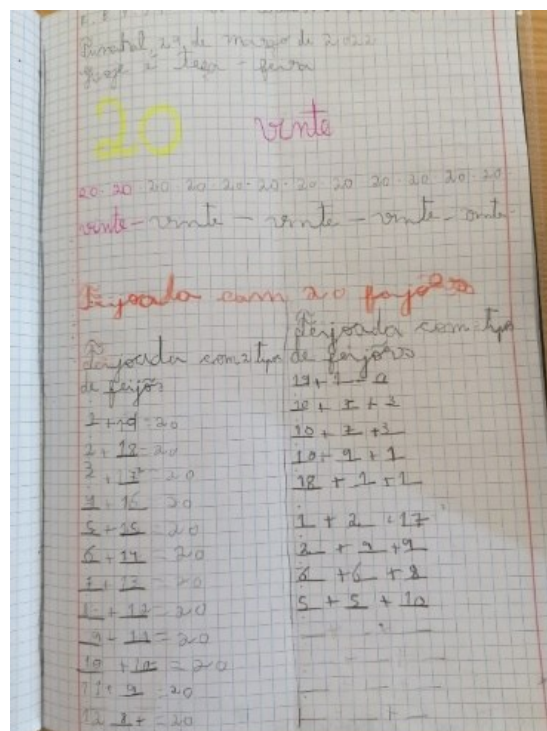 29 de março de 2022
Hoje é terça-feira
20 vinte
20-20-20-20-20-20-20-20-20-20-20-20
vinte-vinte-vinte-vinte-vinte
Feijoada com 20 feijões
Feijoada com 2 tipos
de feijões
1+19=20
2+18=20
3+17=20
4+16=20
5+15=20
6+14=20
7+13=20
8+12=20
9+11=20
10+10=20
11+9=20
12 8+=20
Feijoada com tipos
de feijões
10+7+3
10+9+1
18+1+1
1+2+17
2+9+9
6+6+8
5+5+10